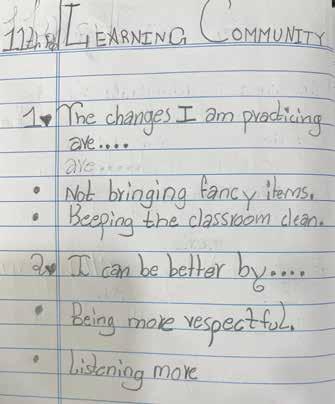 LEARNING COMMUNITY
1. The changes I am practicing
are....
are.....
• Not bringing fancy items.
• Beeping the classroom clean.
2. I can be better by....
• Being more respectful.
• Listening more